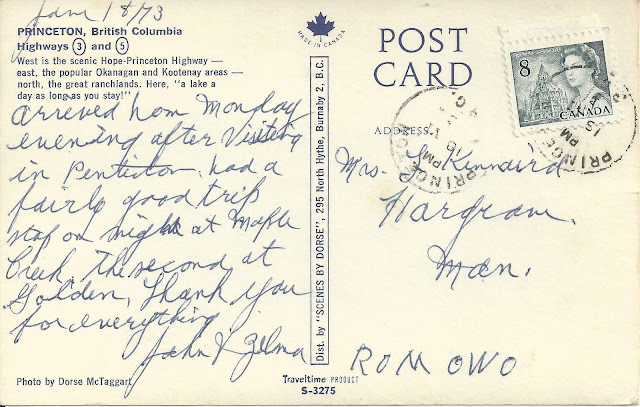 June 18/73
PRINCETON, British Columbia
Highways 3 and 5
West is the scenic Hope-Princeton Highway —
east, the popular Okanagan and Kootenay areas —
north, the great ranchlands. Here, "a lake a
day as long as you stay!"
arreved hom Monday
evening after Visiting
in Penticton. had a
fairly good trip
stop on night at Maple
Creek, the second at
Golden, Thank you
for everything
John & Zelma
Photo by Dorse McTaggart
MADE IN CANADA
Dist. by "SCENES BY DORSE", 295 North Hythe, Burnaby 2, B.C.
Traveltime PRODUCT
S-3275
POST
CARD
ADDRESS
8
CANADA
PM
PRINCETON
PM
Mrs. Kinnaird
Hargrave,
Man.
ROMOWO